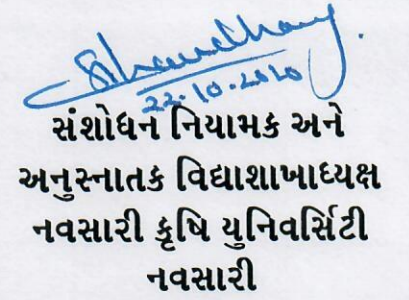 22-10-2020
સંશોધન નિયામક અને
અનુસ્નાતક વિદ્યાશાખાધ્યક્ષ
નવસારી કૃષિ યુનિવર્સિટી
નવસારી